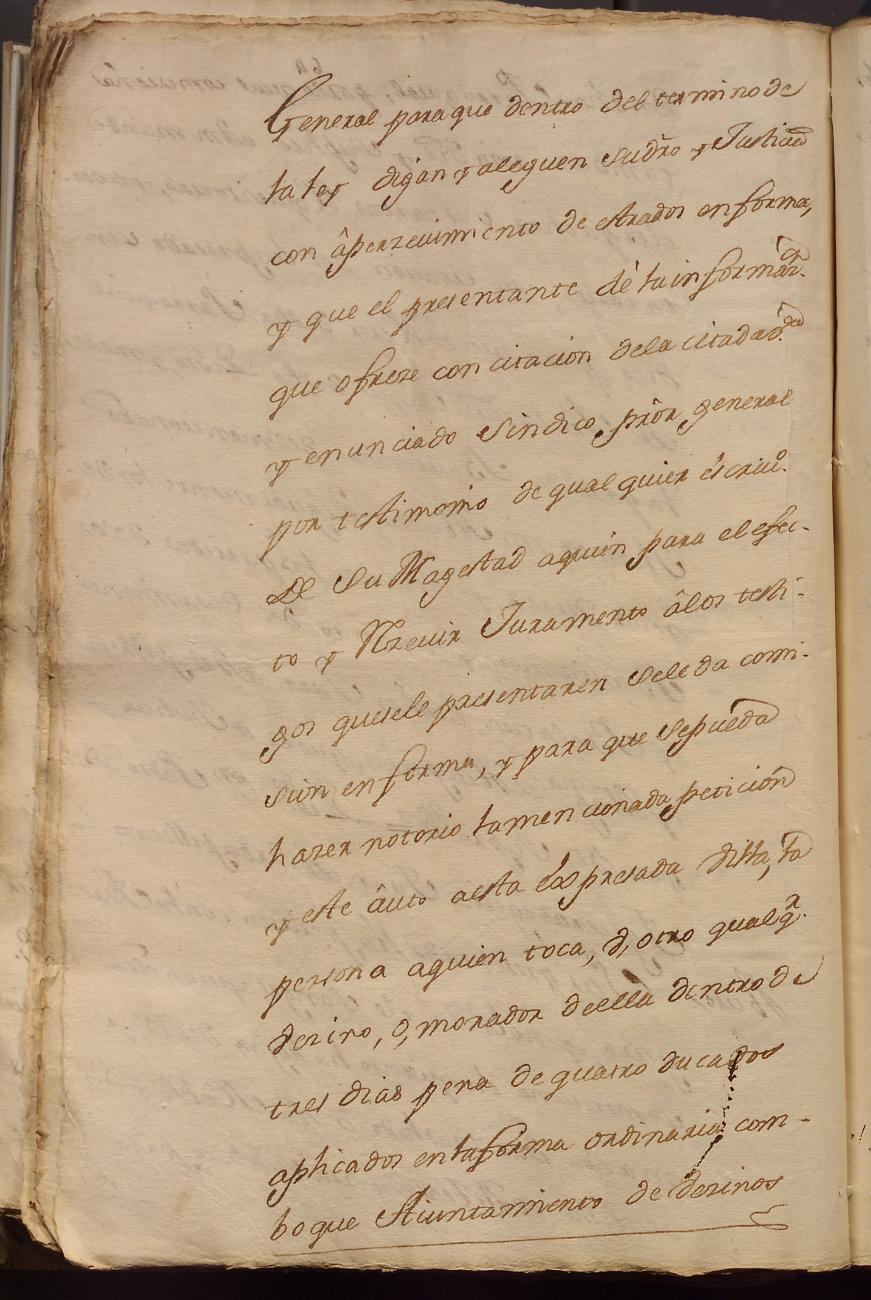 General para que dentro del termino de
la ley digan y aleguen su dro y Justicia
con âperzeuimiento de estrados en forma,
y que el presentante dè la informaz.on
que ofreze con citacion de la citada
y enunciado Sindico prôr general
por testimonio de qual quier escriuo.
De Su Magestad aquien para el efec-
to y Rzeuir Juramento âlos testi-
gos quesele presentaren sele da comi-
sion en forma, y para que sepueda
hazer notorio la mencionada peticion
y este âuto aesta expresada Villa, la
persona aquien toca, ô, otro qualq.r
vezino, o, morador de ella dentro de
tres dias pena de quatro ducados
aplicados en la forma ordinaria com-
boque Aiuntamiento de Vezinos